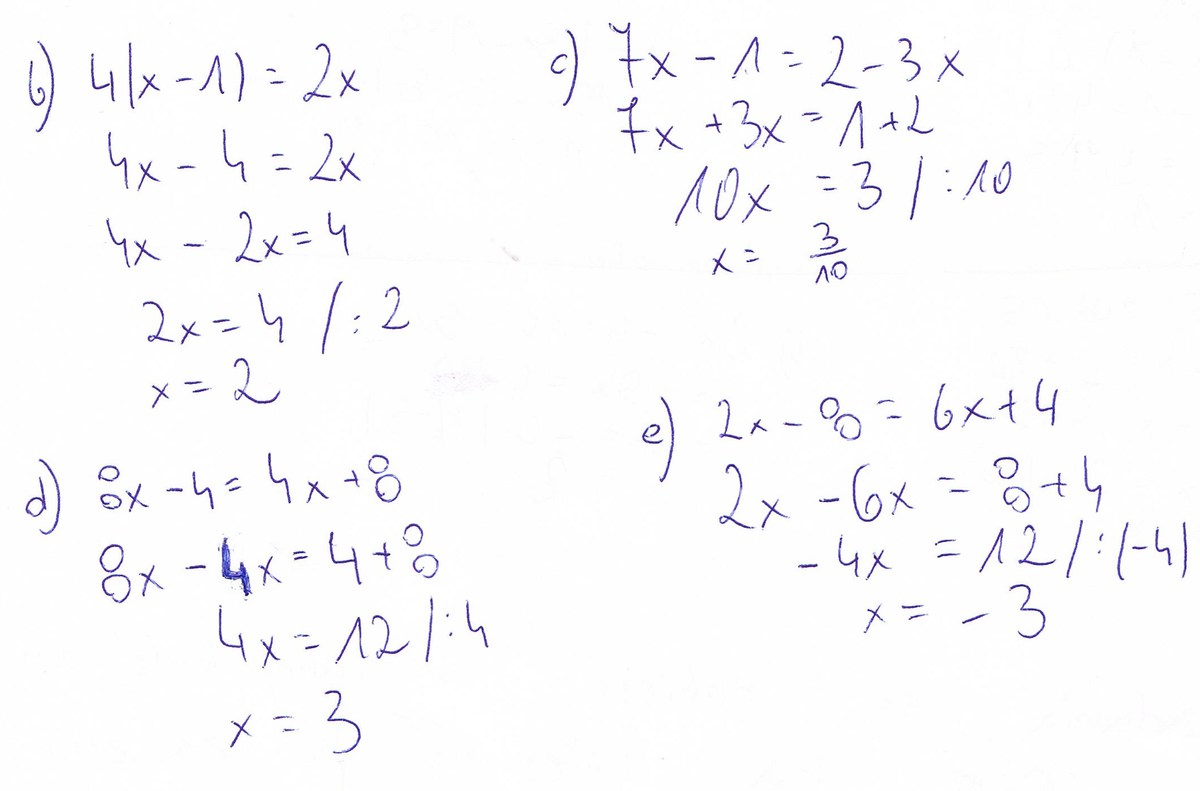 b) 4(x - 1) = 2x
4x - 4 = 2x
4x - 2x = 4
2x = 4 / : 2
x = 2
c) 7x - 1 = 2 - 3x
7x + 3x = 1 + 2
10x = 3 / : 10
x = 3/10
d) 8x - 4 = 4x + 8
8x - 4x = 4 + 8
4x = 12 / : 4
x = 3
e) 2x - 8 = 6x + 4
2x - 6x = 8 + 4
- 4x = 12 / : (-4)
x = - 3